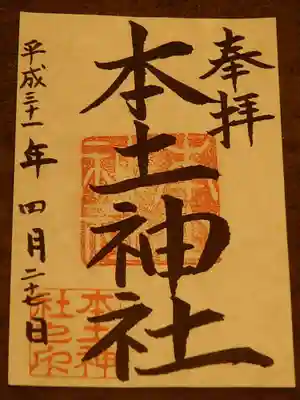 奉拝
本土神社
平成三十一年四月二十七日
本土神
社之印